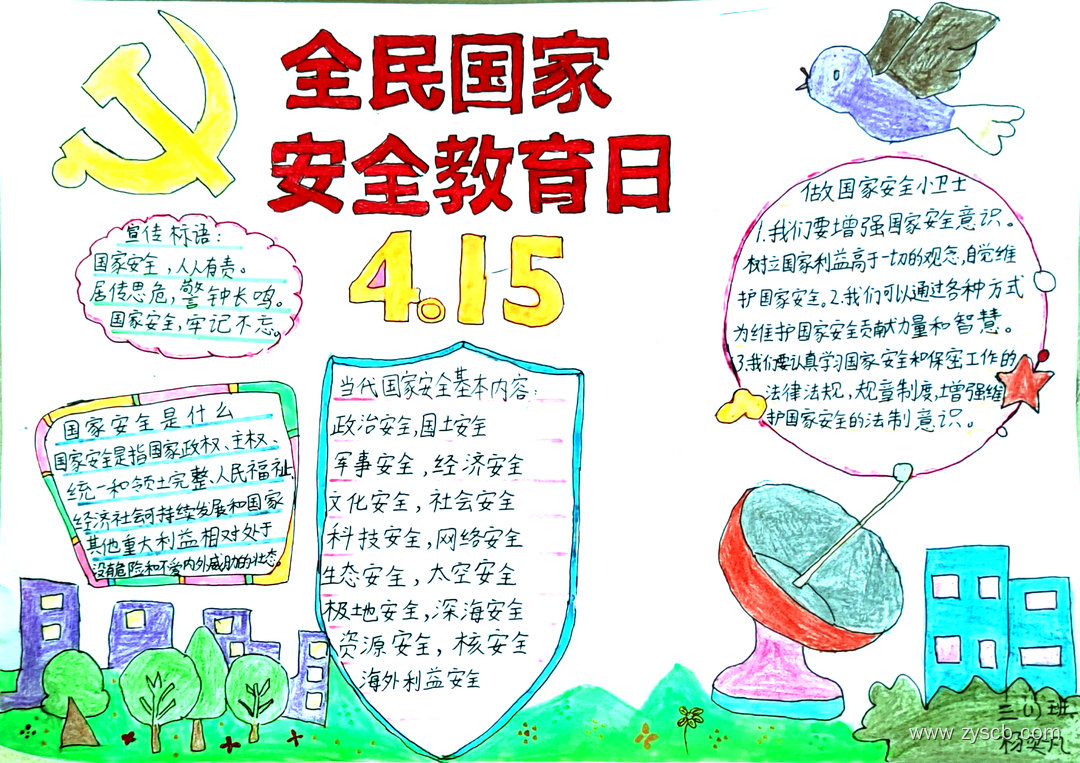 全民国家
安全教育日
4.15
宣传标语：
国家安全，人人有责。
居传思危，警钟长鸣。
国家安全，牢记不忘。
国家安全是什么
国家安全是指国家政权、主权、
统一和领土完整、人民福祉
经济社会可持续发展和国家
其他重大利益相对处于
没有危险和不受内外威胁的状态。
当代国家安全基本内容：
政治安全，国土安全
军事安全，经济安全
文化安全，社会安全
科技安全，网络安全
生态安全，太空安全
极地安全，深海安全
资源安全，核安全
海外利益安全
做国家安全小卫士
1.我们要增强国家安全意识。
树立国家利益高于一切的观念，自觉维
护国家安全。2.我们可以通过各种方式
为维护国家安全贡献力量和智慧。
3.我们要认真学习国家安全和保密工作的
法律法规，规章制度，增强维
护国家安全的法制意识。
www.zyscb.com